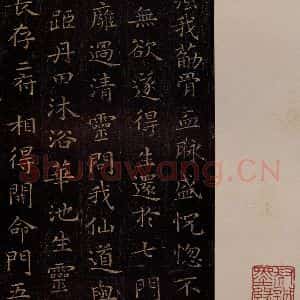 我筋骨血脉盛恍惚不
無欲遂得生還於七門
廱過清靈問我仙道與
距丹田沐浴華池生靈
長存二府相得開命門五
Shufawang.CN